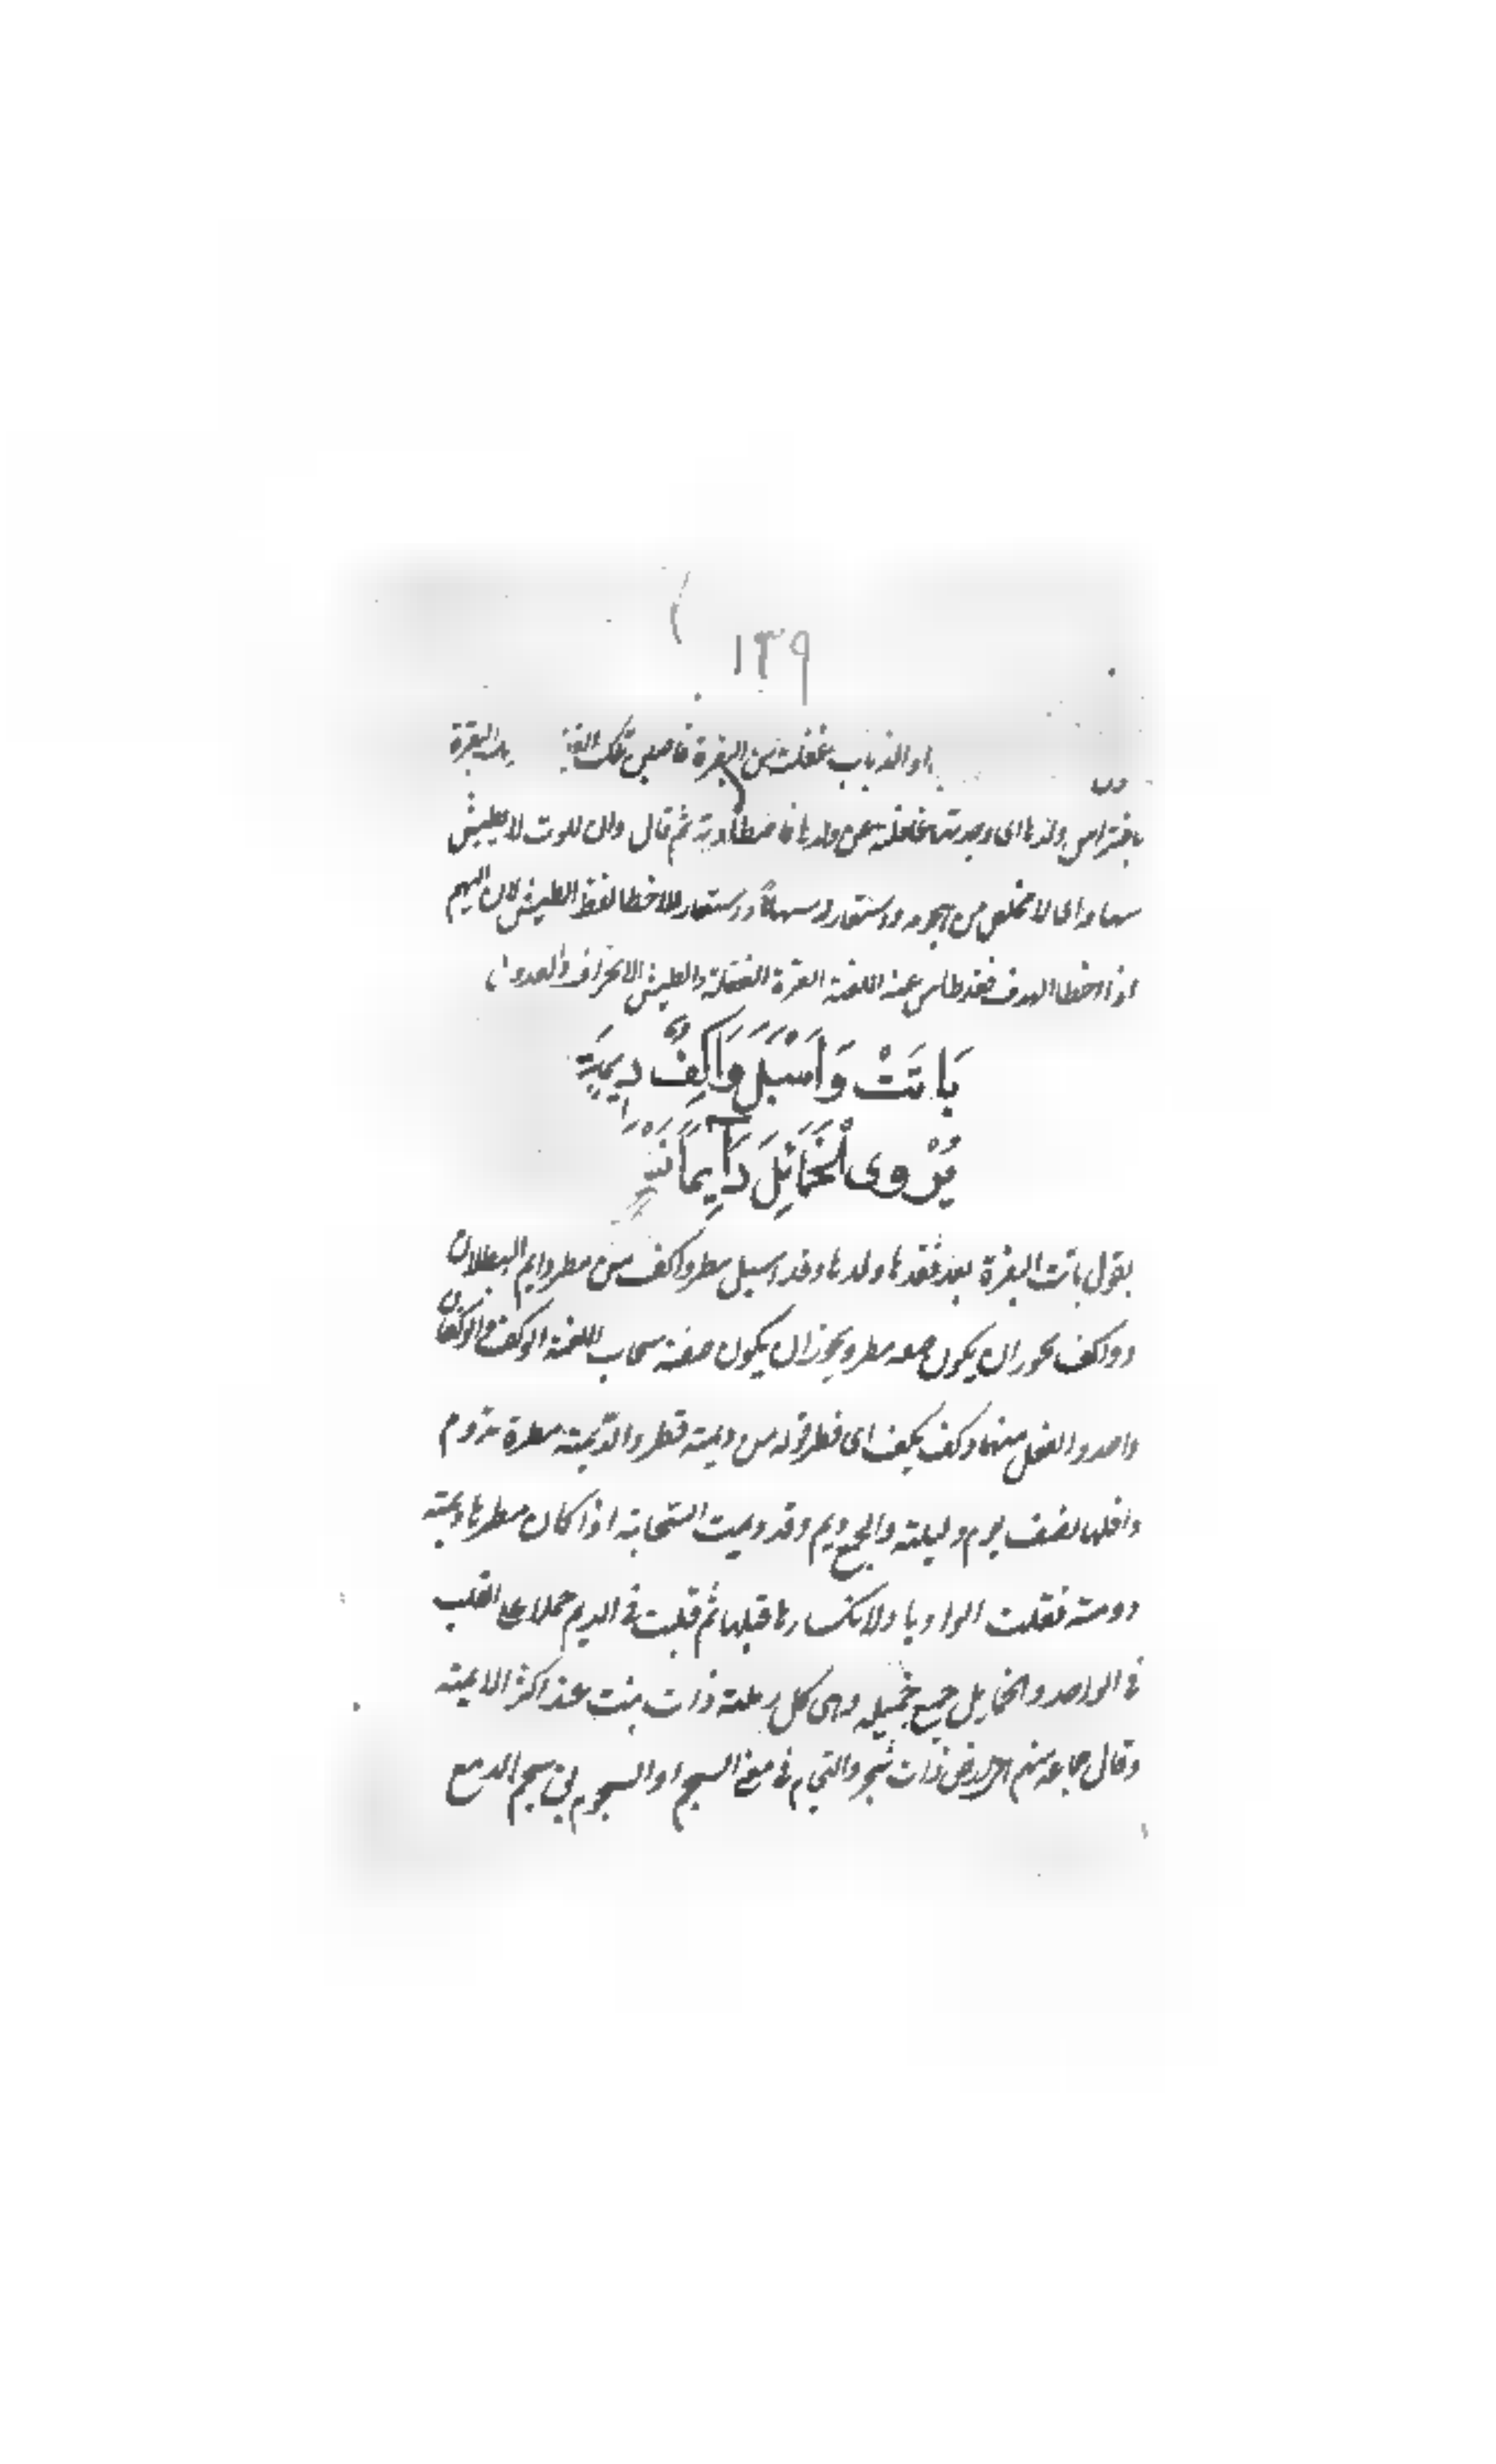 ١٣٩
او الذياب غفلت من البقرة فاصبن تلك البقرة
بافتراس ولدها اى وجدتها غافلة عن ولدها فاصطادته ثم قال وان الموت لا يطيش
سهامه اى لا تخلص من هجومه واستعار له سهاماً واستعار للاخطا لفظ الطيش لان السهم
اذا اخطا الهدف فقد طاش عنه اللغة الغرة الغفلة والطيش الانحراف والعدول
بَاتَتْ وَاَسْبَلَ وَاكِفٌ دِيمَةٍ
يُرْوى الْخَمَائِلَ دَآيِماً
يقول باتت البقرة بعد فقدها ولدها وقد اسبل مطر واكف من مطر دايم الهطلان
وواكف يجوز ان يكون صفه مطر ويجوز ان يكون صفة سحاب اللغة الوكف والوكفان
واحد والفعل منهما وكف يكف اى قطر قوله من ديمة قطر والديمة مطرة تدوم
واقلها نصف يوم وليلة والجمع ديم وقد ديمت السحابة اذا كان مطرها ديمة
دومة فقلبت الواو ياء لانكسار ما قبلها ثم قلبت فى الديم حملا على القلب
فى الواحد والخمايل جمع خميله وهى كل رملة ذات نبت عند اكثر الايمة
وقال جماعة منهم هى ارض ذات شجر والتجام فى معنى السجم او السجوم يق سجم الدمع